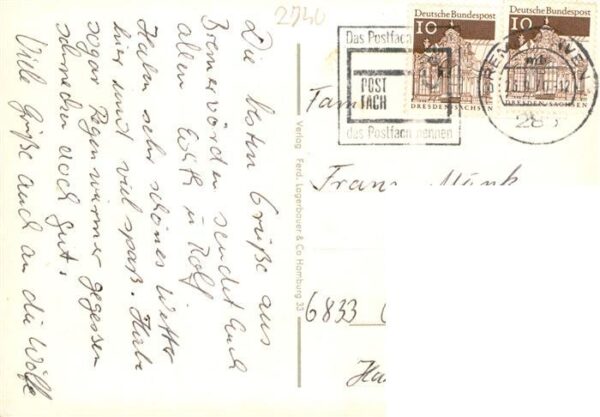 2740
Die besten Grüße aus
Bremervörden sendet Euch
allen Edith u Rolf
Haben sehr schönes Wetter
hier und viel spaß. Habe
sogar Regenwürmer gegessen
schmecken doch gut!
Viele Grüße auch an die Wölfe
Verlag Ferd. Lagerbauer & Co Hamburg 33
Das Postfach
POST
FACH
das Postfach nennen
Deutsche Bundespost
10
DRESDEN/SACHSEN
Deutsche Bundespost
10
DRESDEN/SACHSEN
28
Fam
Franz Münk
6833